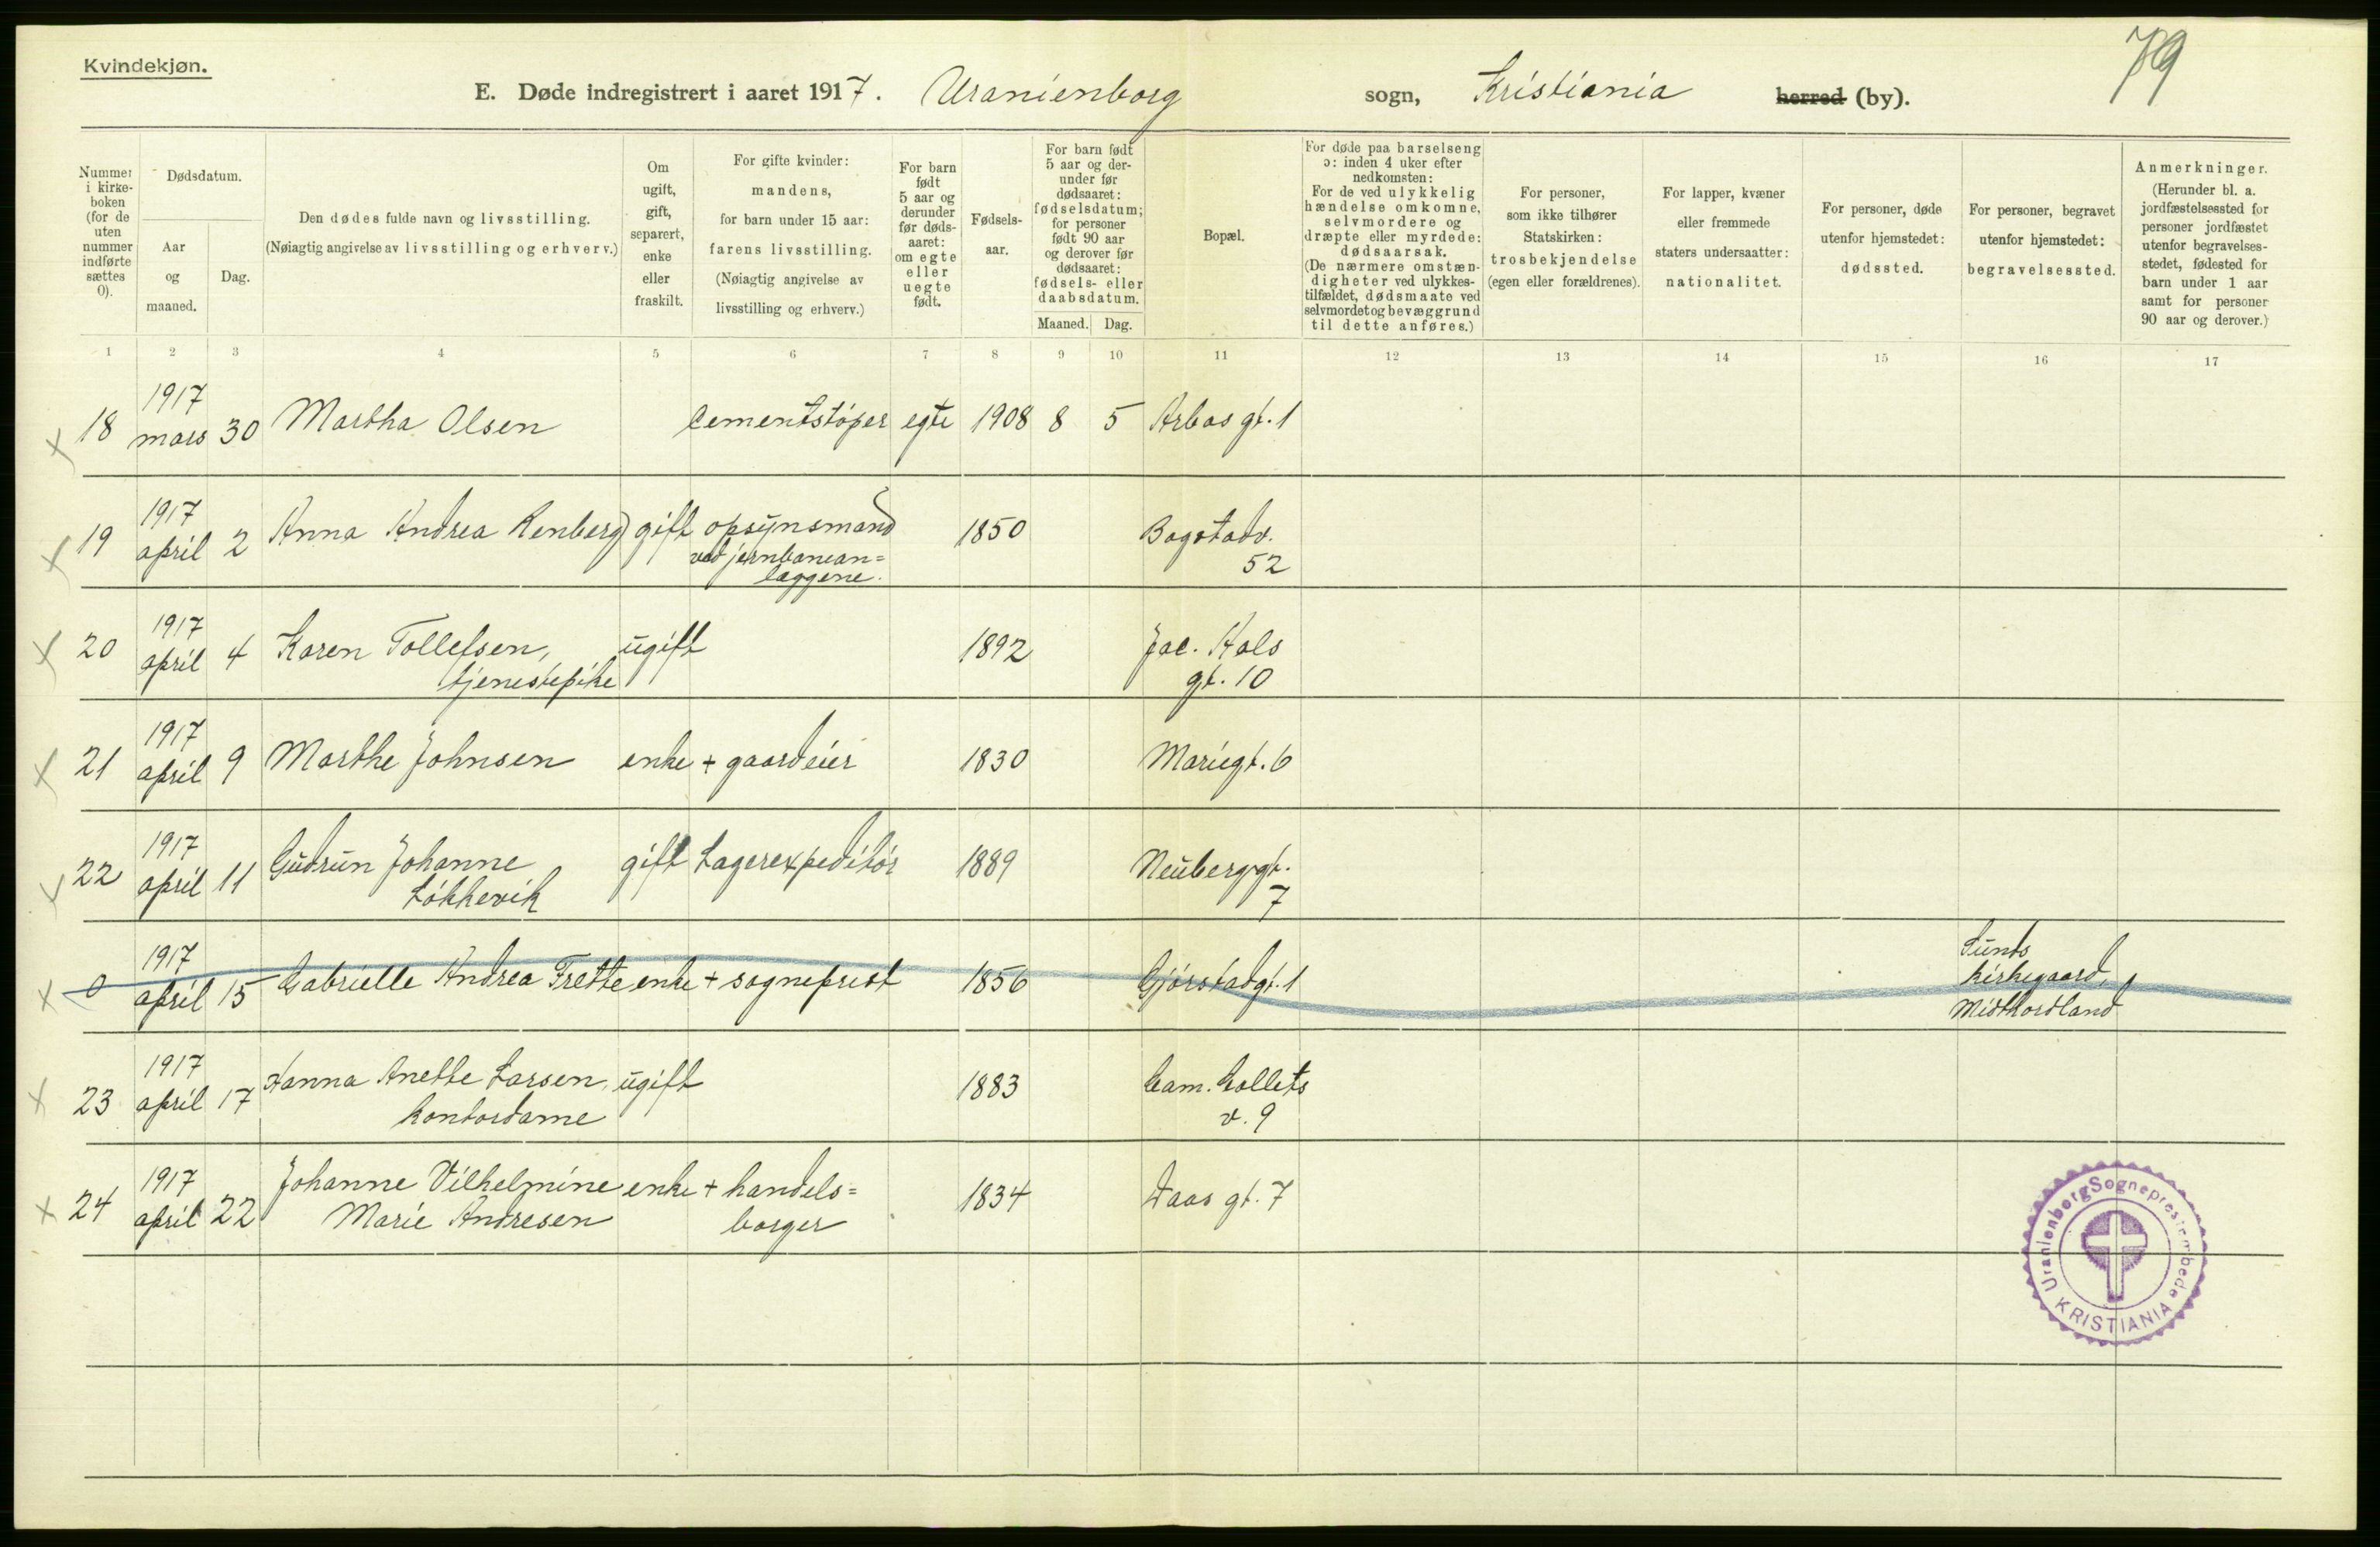 Kvindekjøn.
79
E. Døde indregistrert i aaret 1917. Uranienborg sogn, Kristiania herred (by).
Nummer i kirkeboken (for de uten nummer indførte sættes 0).
Dødsdatum.
Aar og maaned.
Dag.
Den dødes fulde navn og livsstilling.
(Nøiagtig angivelse av livsstilling og erhverv.)
Om ugift, gift, separert, enke eller fraskilt.
For gifte kvinder: mandens, for barn under 15 aar: farens livsstilling. (Nøiagtig angivelse av livsstilling og erhverv.)
For barn født 5 aar og derunder før dødsaaret: om egte eller uegte født.
Fødselsaar.
For barn født 5 aar og derunder før dødsaaret: fødselsdatum; for personer født 90 aar og derover før dødsaaret: fødsels- eller daabsdatum.
Maaned. Dag.
Bopæl.
For døde paa barselseng ɔ: inden 4 uker efter nedkomsten: For de ved ulykkelig hændelse omkomne, selvmordere og dræpte eller myrdede: dødsaarsak. (De nærmere omstændigheter ved ulykkestilfældet, dødsmaate ved selvmordet og bevæggrund til dette anføres.)
For personer, som ikke tilhører Statskirken: trosbekjendelse (egen eller forældrenes).
For lapper, kvæner eller fremmede staters undersaatter: nationalitet.
For personer, døde utenfor hjemstedet: dødssted.
For personer, begravet utenfor hjemstedet: begravelsessted.
Anmerkninger. (Herunder bl. a. jordfæstelsessted for personer jordfæstet utenfor begravelsesstedet, fødested for barn under 1 aar samt for personer 90 aar og derover.)
1 2 3 4 5 6 7 8 9 10 11 12 13 14 15 16 17
x 18 1917 mars 30 Martha Olsen cementstøper egte 1908 8 5 Arbos gt. 1
x 19 1917 april 2 Anna Andrea Renberg gift opsynsmand ved jernbanean=læggene. 1850 Bogstadv. 52
x 20 1917 april 4 Karen Tollefsen, tjenestepike ugift 1892 Jac. Hals gt. 10
x 21 1917 april 9 Marthe Johnsen enke + gaardeier 1830 Mariegt. 6
x 22 1917 april 11 Gudrun Johanne Løkkevik gift Lagerexpeditør 1889 Neuberggt. 7
x 0 1917 april 15 Gabrielle Andrea Trette enke + sogneprest 1856 Gjørstadgt. 1 Sunds kirkegaard, Midthordland
x 23 1917 april 17 Hanna Anette Larsen, kontordame ugift 1883 Cam. Collets v. 9
x 24 1917 april 22 Johanne Vilhelmine Marie Andresen enke + handels=borger 1834 Daas gt. 7
Uranienborg Sogneprestembede
KRISTIANIA